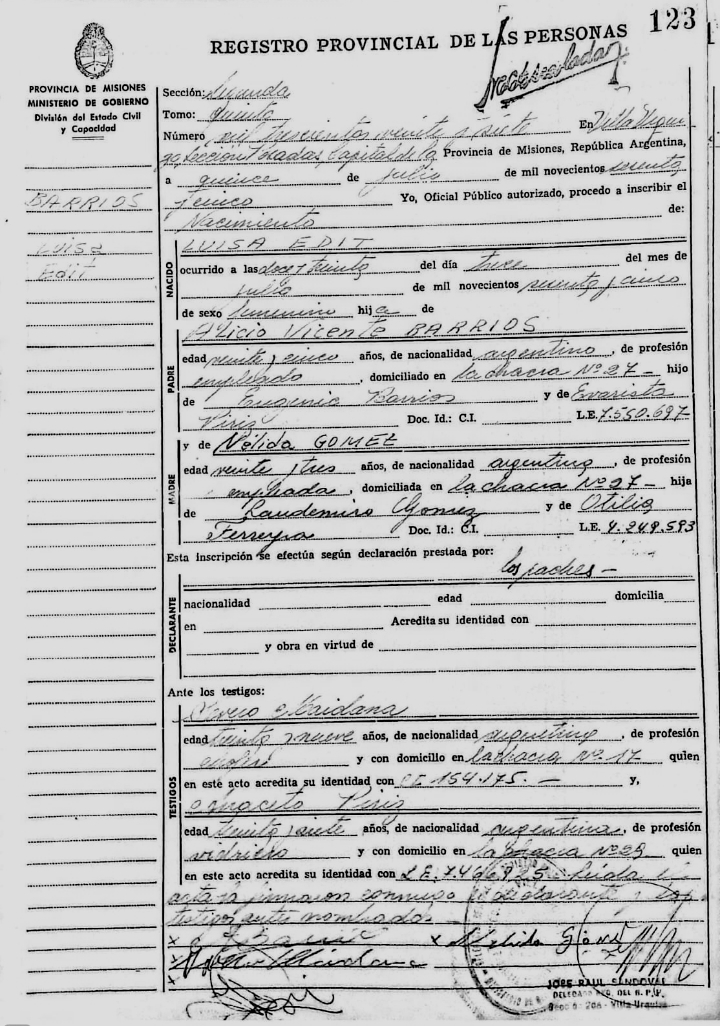 123
REGISTRO PROVINCIAL DE LAS PERSONAS
PROVINCIA DE MISIONES
MINISTERIO DE GOBIERNO
División del Estado Civil
y Capacidad
BARRIOS
Luisa
Edit
Sección: Segunda
Tomo: Quinto
Número mil trescientos veinte y siete En Villa Urqui
za, Seccion Posadas, Capital de la Provincia de Misiones, República Argentina,
a quince de julio de mil novecientos sesenta
y cinco Yo, Oficial Público autorizado, procedo a inscribir el
Nacimiento de:
NACIDO
LUISA EDIT
ocurrido a las doce y treinta del día trece del mes de
julio de mil novecientos sesenta y cinco
de sexo femenino hija de
Alicio Vicente BARRIOS
PADRE
edad veinte y cinco años, de nacionalidad argentino, de profesión
empleado, domiciliado en la chacra Nº 27 — hijo
de Eugenio Barrios y de Evarista
Piris Doc. Id.: C.I. L.E. 7.550.697
y de Nélida GOMEZ
MADRE
edad veinte y tres años, de nacionalidad argentina, de profesión
empleada, domiciliada en la chacra Nº 27 — hija
de Laudemiro Gomez y de Otilia
Ferreyra Doc. Id.: C.I. L.E. 4.249.593
Esta inscripción se efectúa según declaración prestada por:
los padres —
DECLARANTE
nacionalidad edad domicilia
en Acredita su identidad con
y obra en virtud de
Ante los testigos:
Maidana
TESTIGOS
edad treinta y nueve años, de nacionalidad argentino, de profesión
chofer y con domicilio en la chacra Nº 17 quien
en este acto acredita su identidad con CI 154.175. — y,
Anacleto Piris
edad treinta y siete años, de nacionalidad argentina, de profesión
vidriero y con domicilio en la chacra Nº 29 quien
en este acto acredita su identidad con L.E. Leida el
acta la firmaron conmigo el declarante y los
testigos antes nombrados.
x Nelida Gomez
Maidana
JOSE RAUL SANDOVAL
DELEGADO REG. DEL R. P. P.
Secc. 6 - 206 - Villa Urquiza